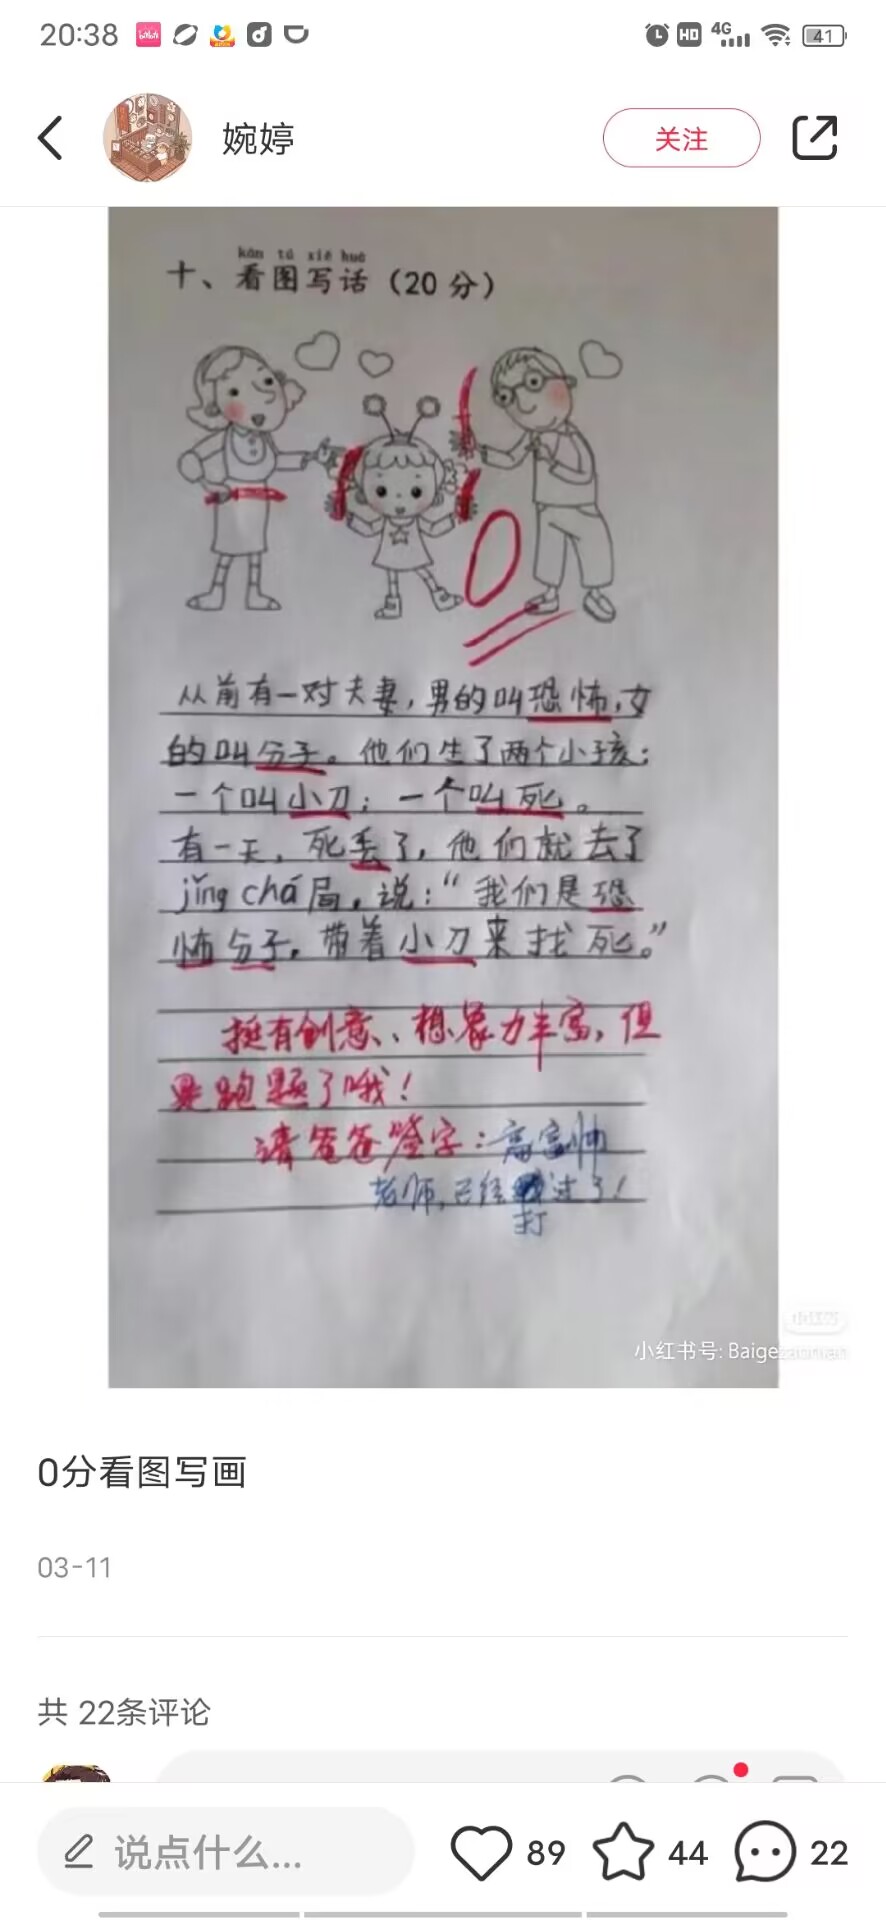 20:38
HD 4G 41
婉婷
关注
kàn tú xiě huà
十、看图写话（20分）
0
从前有一对夫妻，男的叫恐怖，女
的叫分子。他们生了两个小孩：
一个叫小刀；一个叫死。
有一天，死丢了，他们就去了
jǐng chá局，说：“我们是恐
怖分子，带着小刀来找死。”
挺有创意、想象力丰富，但
是跑题了哦！
请爸爸签字：高富帅
老师，已经打过了！
小红书
小红书号: Baige
0分看图写画
03-11
共 22条评论
说点什么...
89
44
22